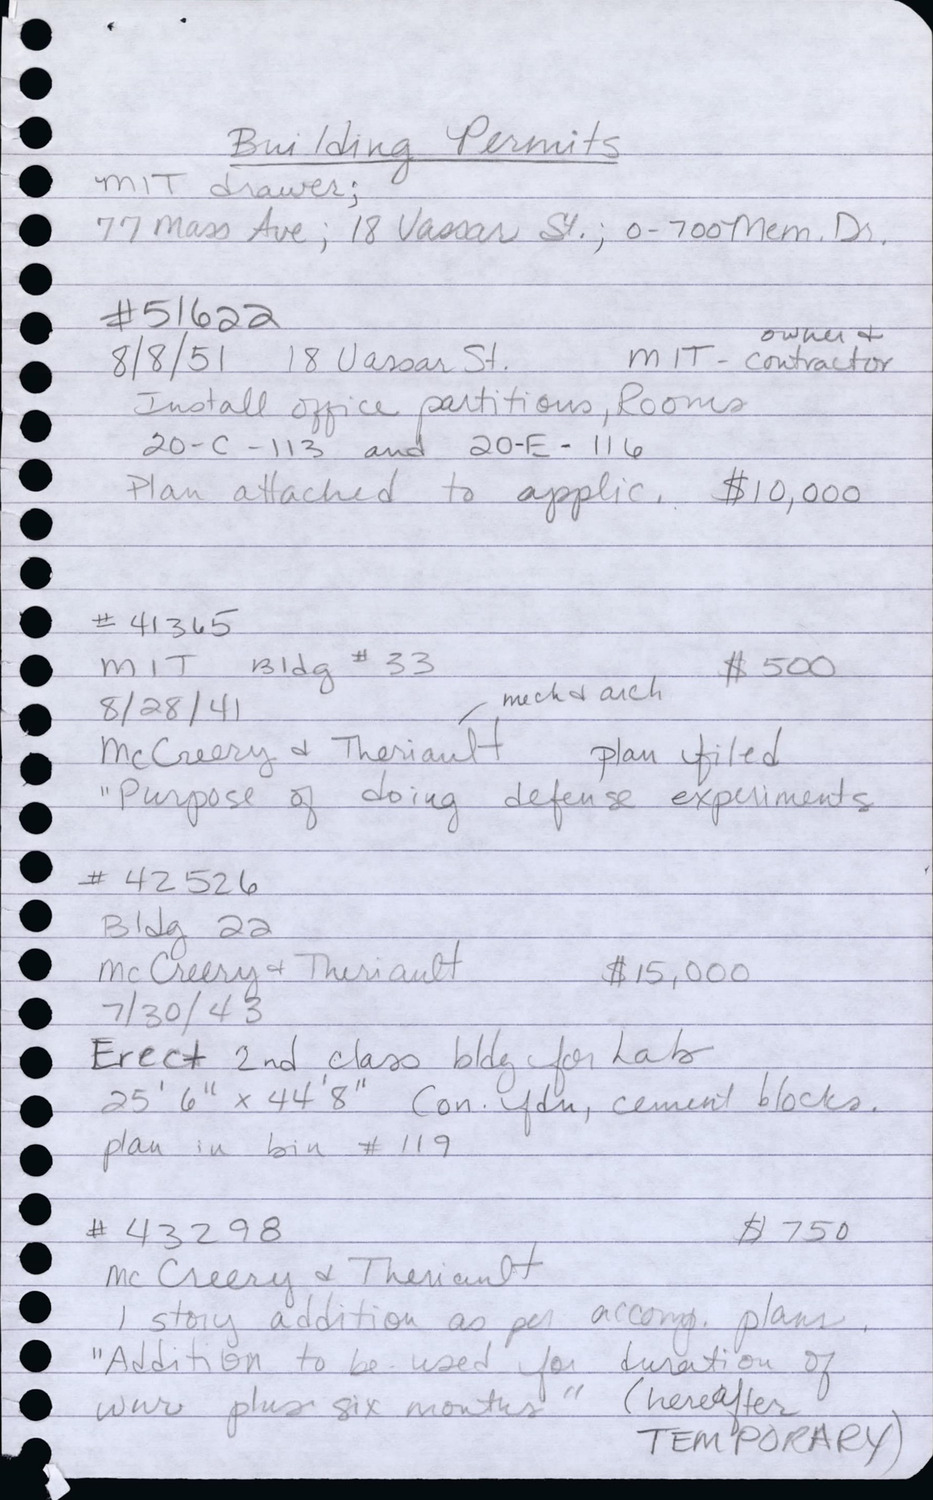 Building Permits
MIT drawer;
77 Mass Ave; 18 Vassar St.; 0-700 Mem. Dr.
#51622
owner &
8/8/51 18 Vassar St. MIT - contractor
Install office partitions, Rooms
20-C-113 and 20-E-116
Plan attached to applic. $10,000
# 41365
MIT Bldg # 33 $500
8/28/41 mech & arch
McCreery & Theriault plan filed
"Purpose of doing defense experiments
# 42526
Bldg 22
McCreery & Theriault $15,000
7/30/43
Erect 2nd class bldg for Lab
25'6" x 44'8" Con. fdn, cement blocks.
plan in bin # 119
# 43298 $750
McCreery & Theriault
1 story addition as per accomp. plans.
"Addition to be used for duration of
war plus six months" (hereafter
TEMPORARY)